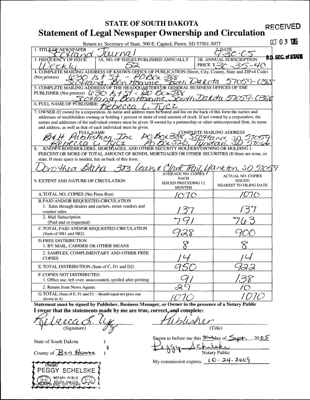 STATE OF SOUTH DAKOTA
Statement of Legal Newspaper Ownership and Circulation
RECEIVED
OCT 03 '05
S.D. SEC. OF STATE
Return to: Secretary of State, 500 E. Capitol, Pierre, SD 57501-5077
1. TITLE OF NEWSPAPER
Scotland Journal
2. DATE
9-30-05
3. FREQUENCY OF ISSUE
Weekly
3A. NO. OF ISSUES PUBLISHED ANNUALLY
52
3B. ANNUAL SUBSCRIPTION
PRICE
4. COMPLETE MAILING ADDRESS OF KNOWN OFFICE OF PUBLICATION (Street, City, County, State and ZIP+4 Code)
(Not printers)
5. COMPLETE MAILING ADDRESS OF THE HEADQUARTERS OR GENERAL BUSINESS OFFICES OF THE
PUBLISHER (Not printers)
Scotland, Bon Homme, South Dakota 57059-0388
6. FULL NAME OF PUBLISHER
Rebecca L. Tycz
7. OWNER (If owned by a corporation, its name and address must be stated and also on the back of this form the names and
addresses of stockholders owning or holding 1 percent or more of total amount of stock. If not owned by a corporation, the
names and addresses of the individual owners must be given. If owned by a partnership or other unincorporated firm, its name
and address, as well as that of each individual must be given.
FULL NAME
COMPLETE MAILING ADDRESS
B & H Publishing Inc. PO Box 388, Scotland, SD 57059
Rebecca L. Tycz
8. KNOWN BONDHOLDERS, MORTGAGES, AND OTHER SECURITY HOLDERS OWNING OR HOLDING 1
PERCENT OR MORE OF TOTAL AMOUNT OF BONDS, MORTGAGES OR OTHER SECURITIES (If there are none, so
state. If more space is needed, list on back of this form.
9. EXTENT AND NATURE OF CIRCULATION
AVERAGE NO. COPIES EACH ISSUES PRECEDING 12 MONTHS
ACTUAL NO. COPIES ISSUED NEAREST TO FILING DATE
A. TOTAL NO. COPIES (Net Press Run) 1070 1070
B. PAID AND/OR REQUESTED CIRCULATION
1. Sales through dealers and carriers, street vendors and
counter sales. 137 137
2. Mail Subscription
(Paid and/or requested) 791 763
C. TOTAL PAID AND/OR REQUESTED CIRCULATION
(Sum of 9B1 and 9B2) 928 900
D. FREE DISTRIBUTION
1. BY MAIL, CARRIER OR OTHER MEANS 8 8
2. SAMPLES, COMPLIMENTARY AND OTHER FREE
COPIES 14 14
E. TOTAL DISTRIBUTION (Sum of C, D1 and D2) 950 922
F. COPIES NOT DISTRIBUTED
1. Office use, left over, unaccounted, spoiled after printing 91 138
2. Return from News Agents 29 10
G. TOTAL (Sum of E, F1 and F2 - Should equal net press run
shown in A) 1070 1070
Statement must be signed by Publisher, Business Manager, or Owner in the presence of a Notary Public
I swear that the statements made by me are true, correct, and complete:
Rebecca L. Tycz
(Signature)
Publisher
(Title)
State of South Dakota )
County of Bon Homme )
Sworn to before me this 30 day of Sept. 2005
Peggy Schelske
Notary Public
My commission expires: 10-24-2009
PEGGY SCHELSKE
NOTARY PUBLIC